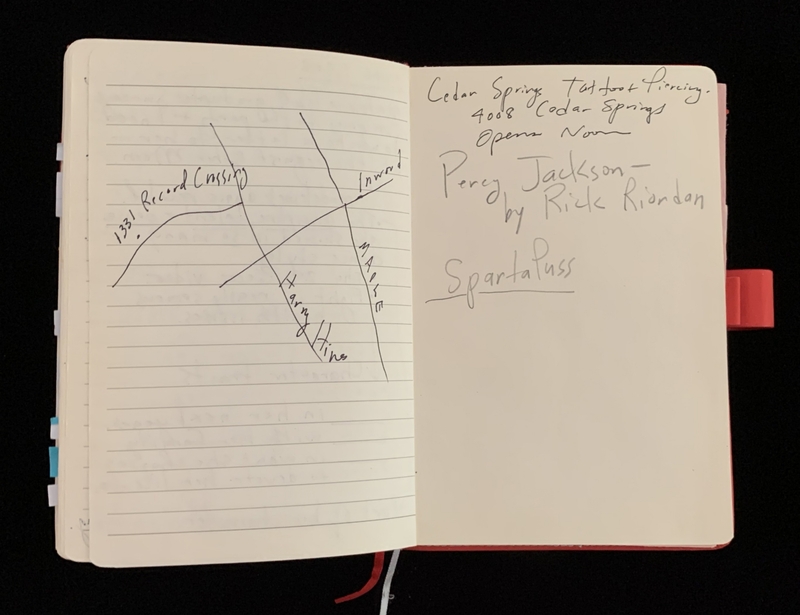 1331 Record Crossing
Inwood
MAPLE
Harry Hines
Cedar Springs Tattoo + Piercing.
4008 Cedar Springs
Opens Noon
Percy Jackson —
by Rick Riordan
Spartapuss